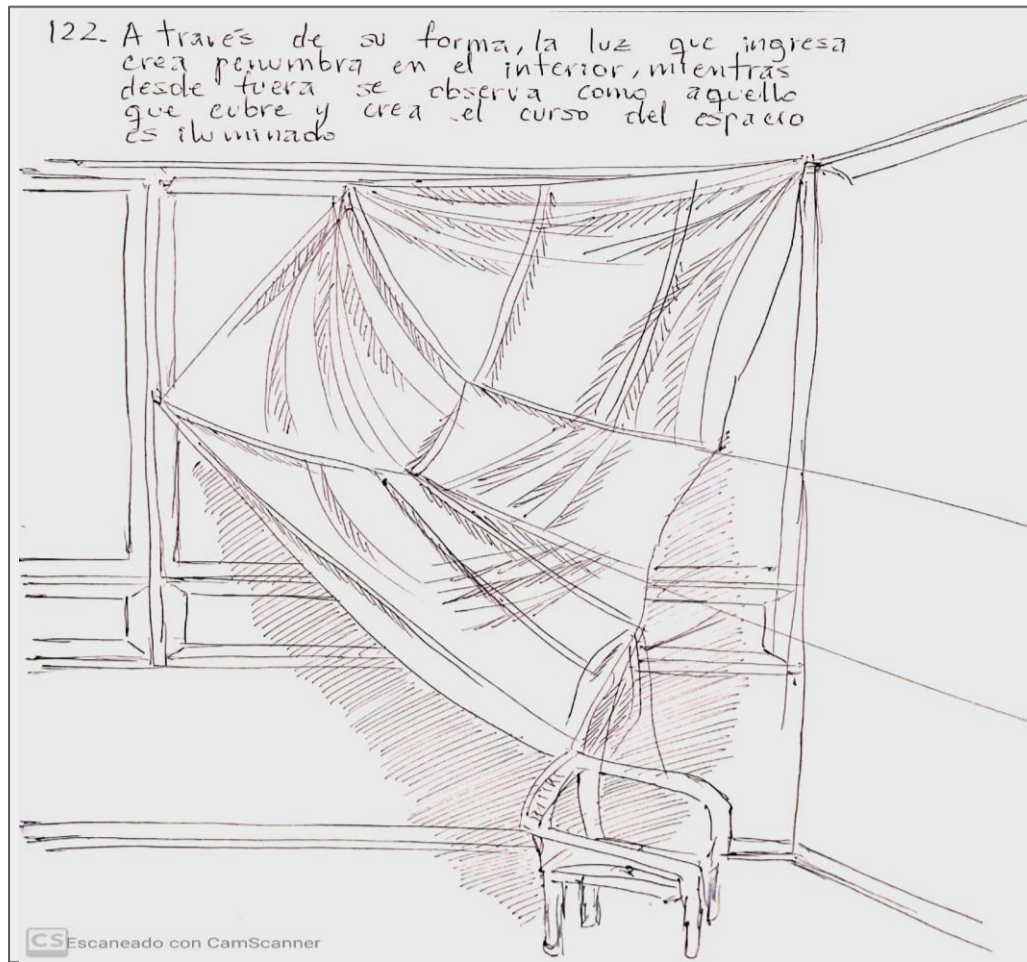 122. A través de su forma, la luz que ingresa
crea penumbra en el interior, mientras
desde fuera se observa como aquello
que cubre y crea el curso del espacio
es iluminado
CS Escaneado con CamScanner